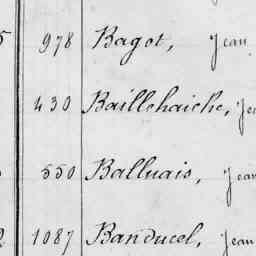 978 Bagot, Jean
430 Baillehaiche, Je
550 Balluais, Jean
1087 Banducel, Jean